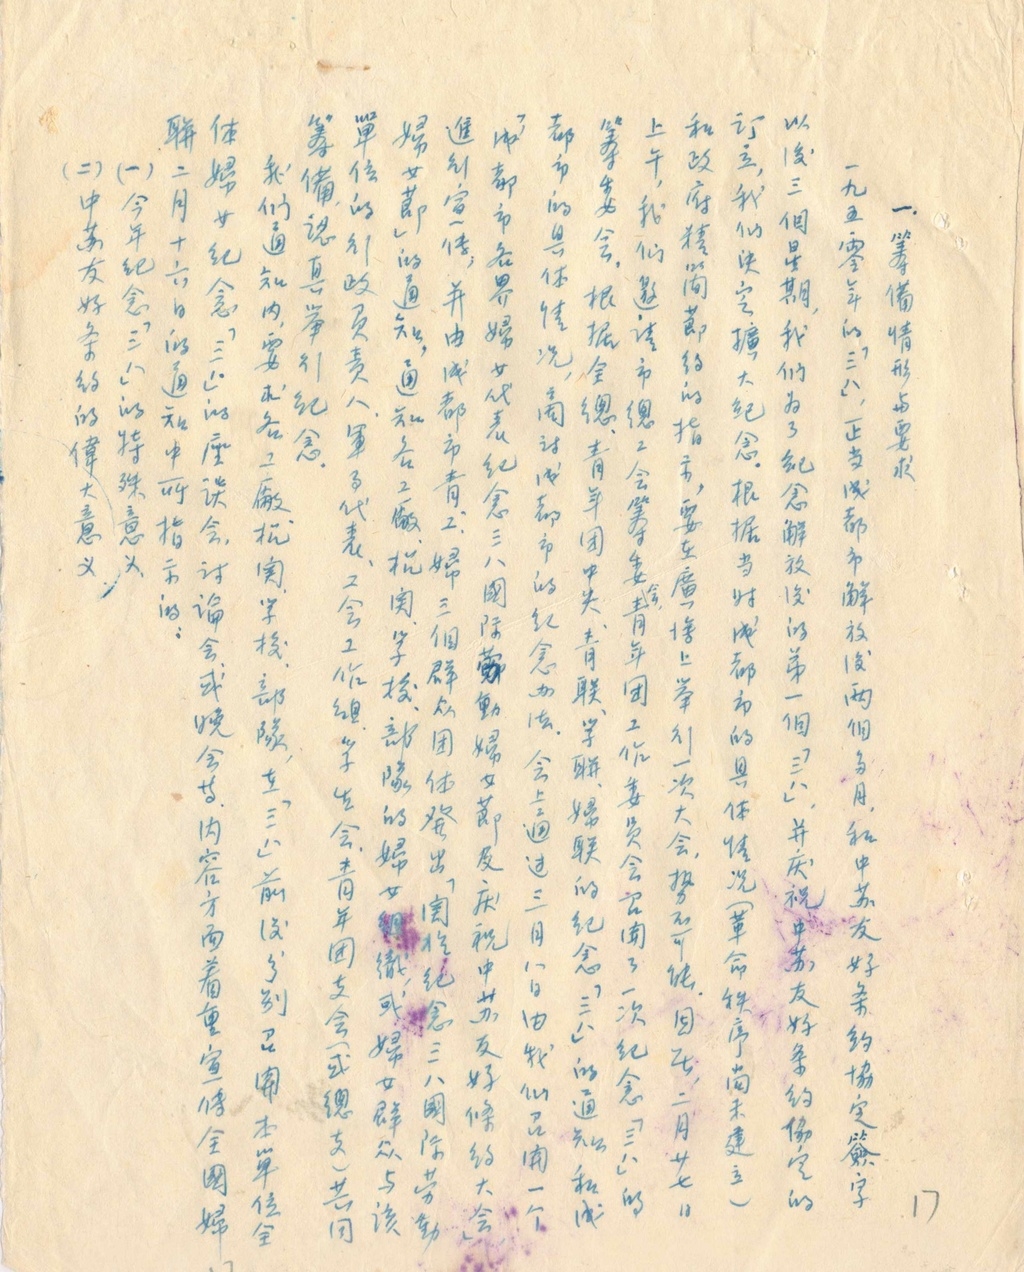 一、筹備情形与要求
一九五零年的「三八」,正当成都市解放後两個多月,和中苏友好条約協定簽字
以後三個星期,我们为了紀念解放後的第一個「三八」,并庆祝中苏友好条約協定的
訂立,我们决定擴大紀念。根据当时成都市的具体情况(革命秩序尚未建立)
和政府精简節約的指示,要在廣場上举行一次大会,势不可能。因此,二月廿七日
上午,我们邀請市總工会籌委会,青年团工作委員会召開了一次紀念「三八」的
筹委会。根据全總、青年团中央、青联、学联、婦联的紀念「三八」的通知和成
都市的具体情况,商討成都市的紀念办法。会上通过三月八日由我们召開一个
「成都市各界婦女代表紀念三八國际劳動婦女節及庆祝中苏友好條約大会」
進行宣傳,并由成都市青、工、婦三個群众团体發出「関於紀念三八國际劳動
婦女節」的通知,通知各工廠、机関、学校、部隊的婦女組織,或婦女群众与該
單位的行政負責人、軍事代表、工会工作組、学生会、青年团支会(或總支)共同
筹備,認真举行紀念。
我们通知内,要求各工廠机関、学校、部隊,在「三八」前後分别召開本單位全
体婦女紀念「三八」的座談会,討論会,或晚会等,内容方面着重宣傳全國婦
联二月十六日的通知中所指示的:
(一)今年紀念「三八」的特殊意义
(二)中苏友好条約的偉大意义
17